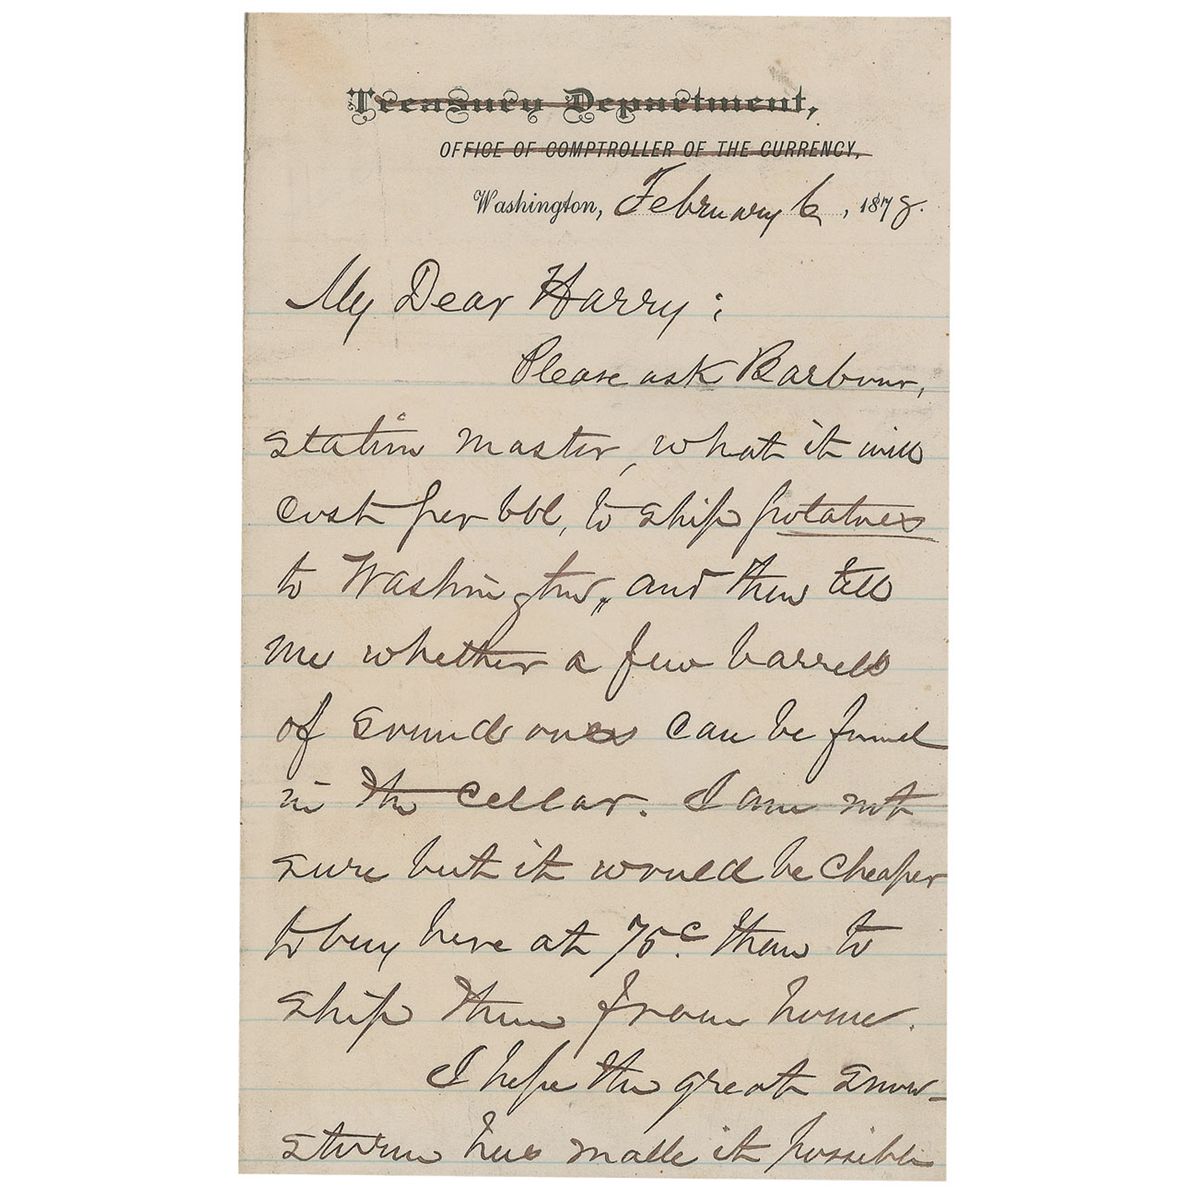 Treasury Department,
OFFICE OF COMPTROLLER OF THE CURRENCY,
Washington, February 6, 1878.
My Dear Harry:
Please ask Barbour,
station master, what it will
cost per bbl, to ship potatoes
to Washington, and then tell
me whether a few barrels
of sound ones can be found
in the cellar. I am not
sure but it would be cheaper
to buy here at 75c. than to
ship them from home.
I hope the great snow-
storm has made it possible